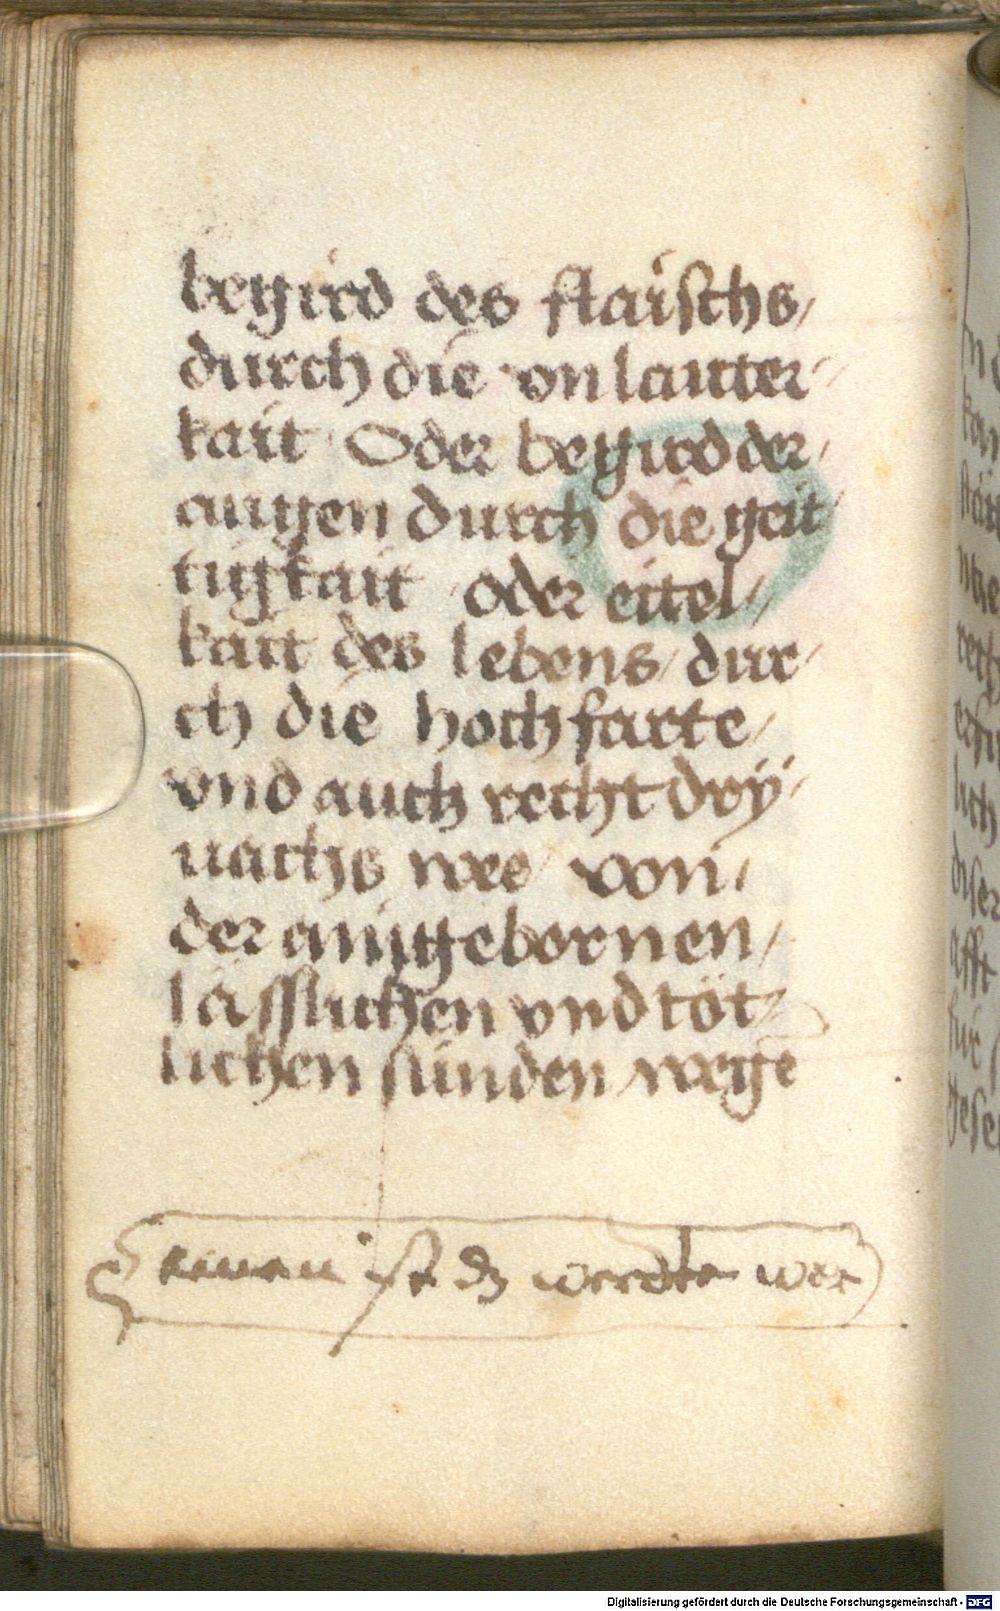 begird des flaischs/
durch die vnlauter/
kait Oder begird der/
augen durch die geit/
tigkait oder eitel/
kait des lebens/ dur/
ch die hochfarte/
vnd auch recht dry/
uachs wee/ von/
der angebornen/
lässlichen vnd töt/
lichen sünden/ wege
dz werdte wer
Digitalisierung gefördert durch die Deutsche Forschungsgemeinschaft - DFG